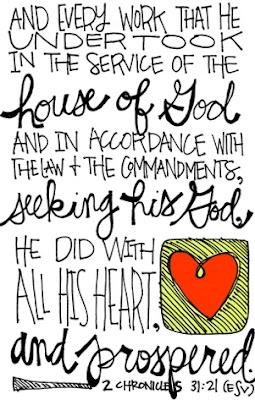 AND EVERY WORK THAT HE
UNDERTOOK
IN THE SERVICE OF THE
house of God
AND IN ACCORDANCE WITH
THE LAW + THE COMMANDMENTS,
seeking his God,
HE DID WITH
ALL HIS HEART,
and prospered.
2 CHRONICLES 31:21 (ESV)